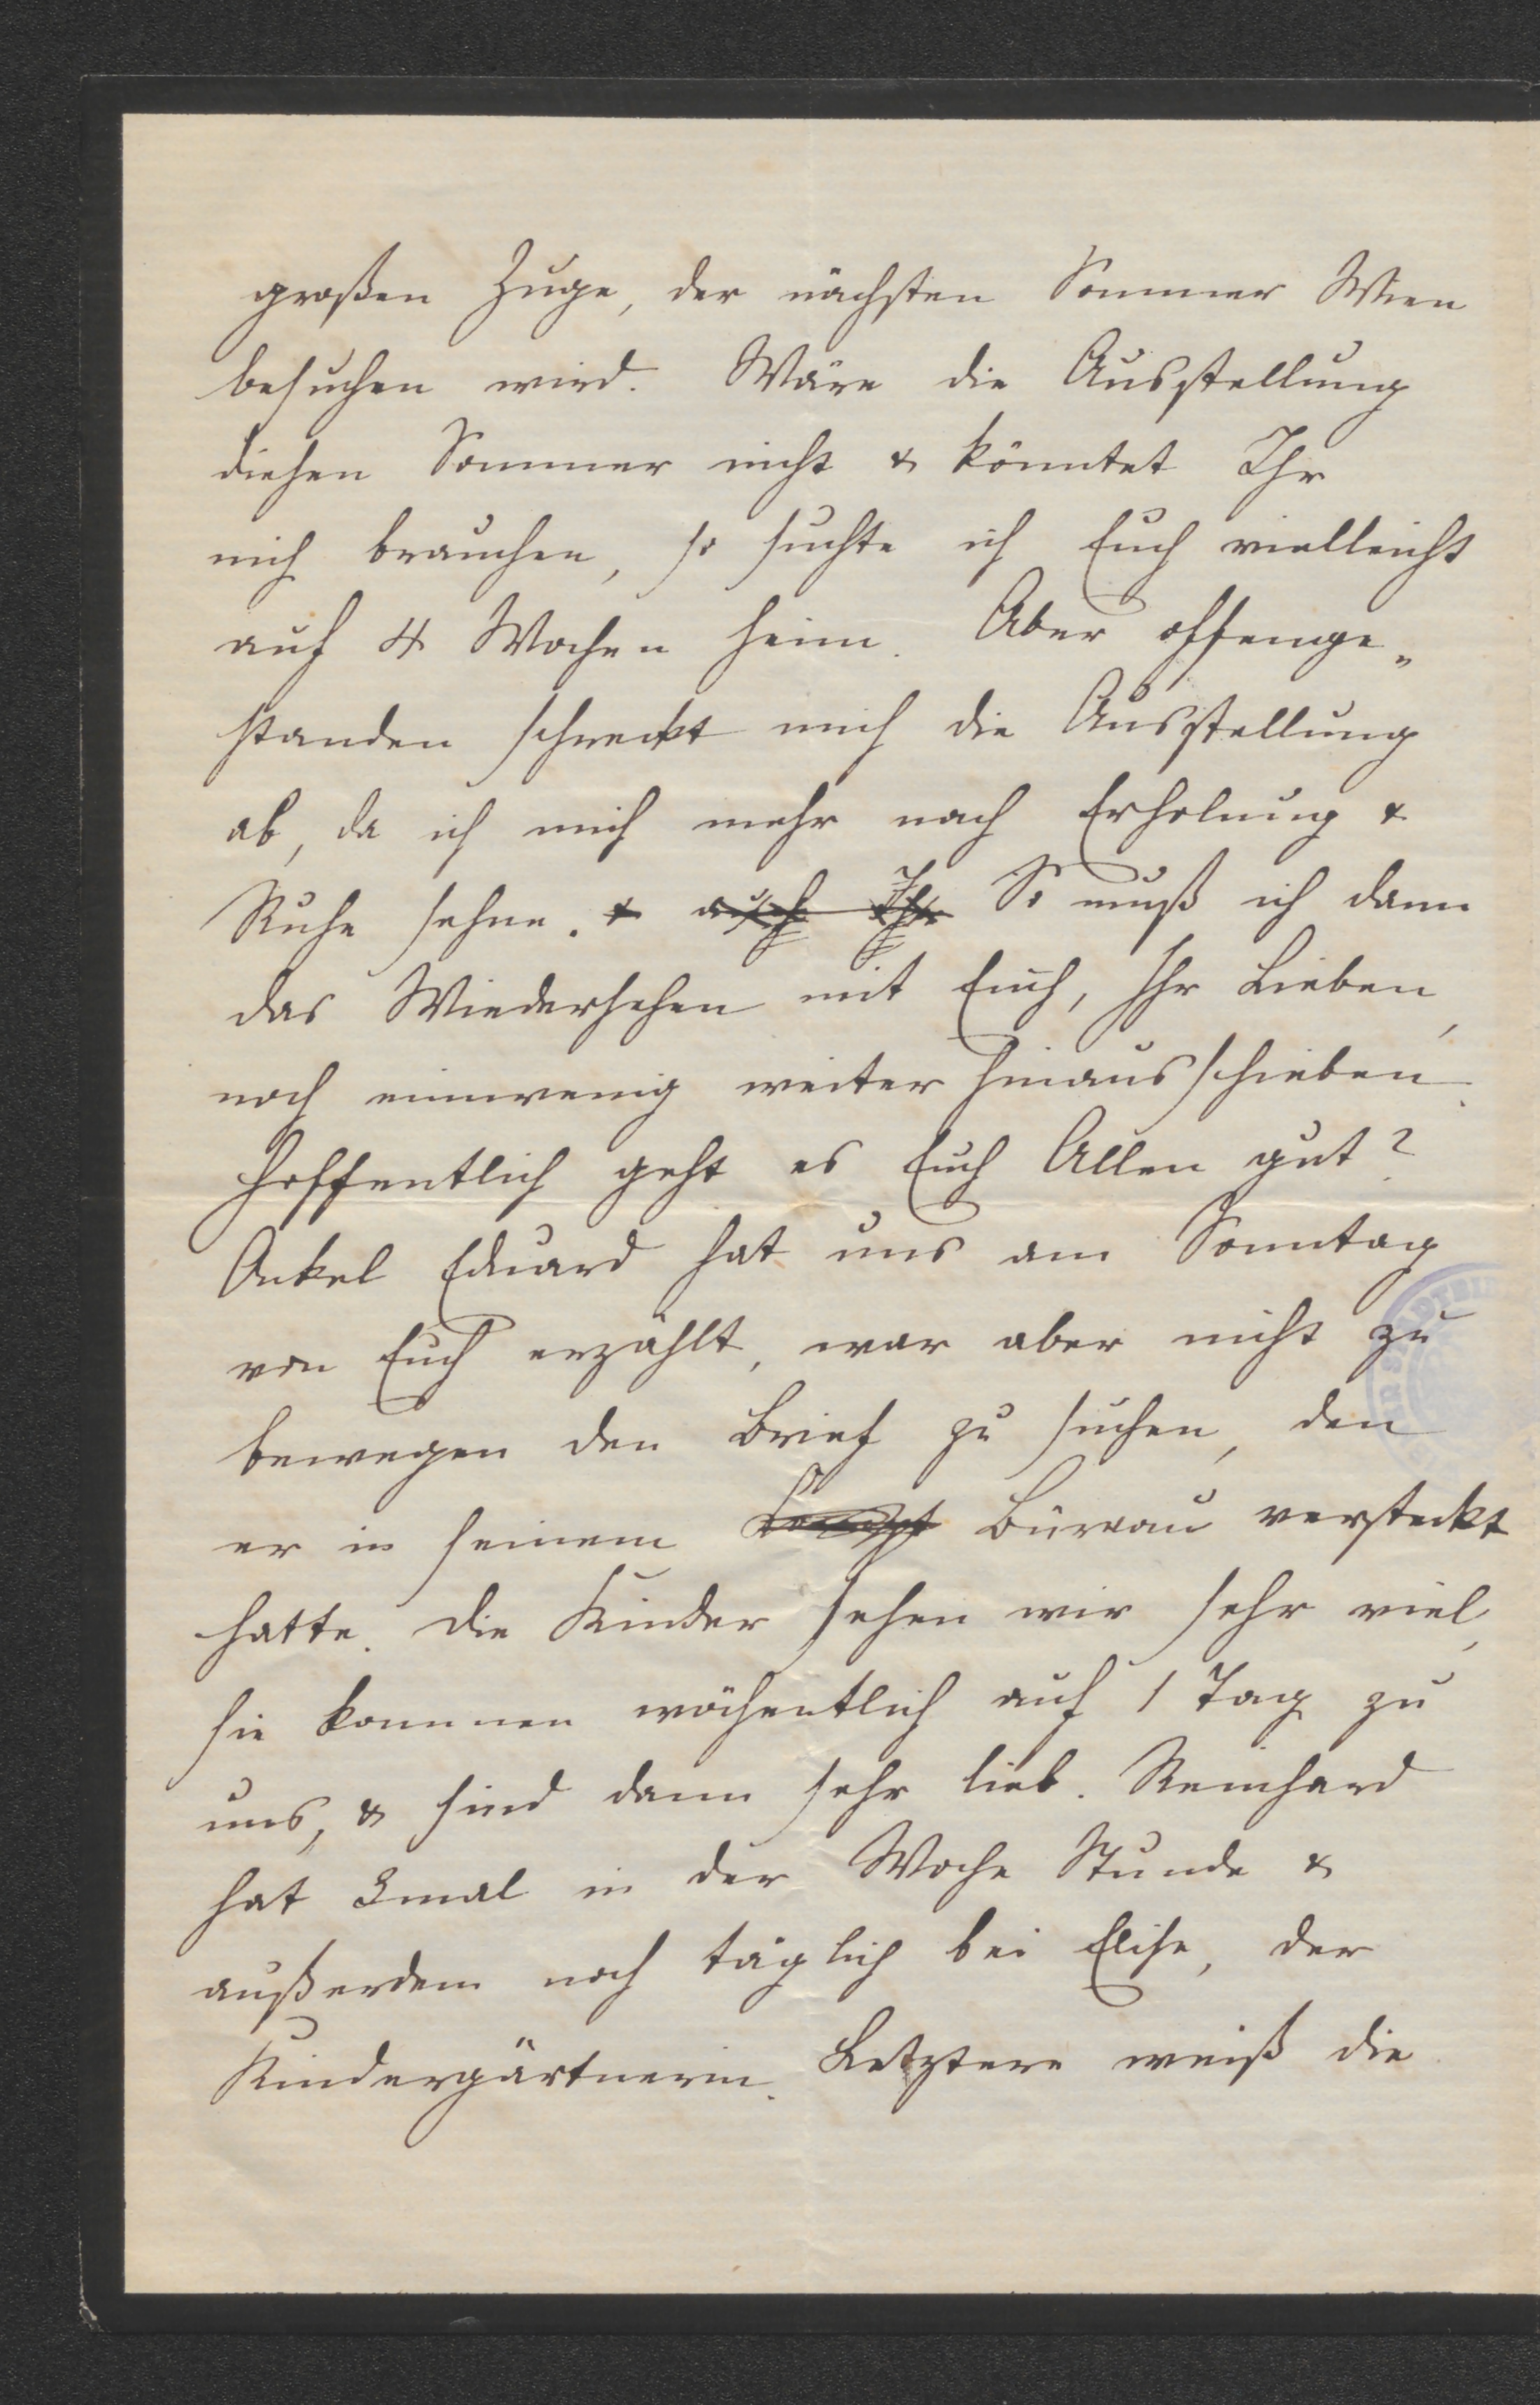 großen Zuge, der nächsten Sommer Wien
besuchen wird. Wäre die Ausstellung
diesen Sommer nicht & könntet Ihr
mich brauchen, so suchte ich Euch vielleicht
auf 4 Wochen heim. Aber offenge„
standen schreckt mich die Ausstellung
ab, da ich mich mehr nach Erholung &
Ruhe sehne. & auch Ihr So muß ich dann
das Wiedersehen mit Euch, Ihr Lieben,
noch einwenig weiter hinausschieben.
Hoffentlich geht es Euch Allen gut?
Onkel Eduard hat uns am Sonntag
von Euch erzählt, war aber nicht zu
bewegen den Brief zu suchen, den
er in seinem Büreau versteckt
hatte. Die Kinder sehen wir sehr viel,
sie kommen wöchentlich auf 1 Tag zu
uns, & sind dann sehr lieb. Reinhard
hat 3mal in der Woche Stunde &
außerdem noch täglich bei Elise, der
Kindergärtnerin. Letztere weiß die